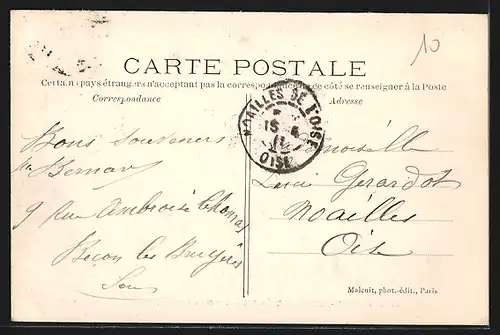 10
CARTE POSTALE
Certains pays étrangers n'acceptant pas la correspondance de côté se renseigner à la Poste
Correspondance
Adresse
NOAILLES DE L'OISE
15
OISE
Bons souvenirs
Bernard
9 rue Ambroise Thomas
Becon les Bruyères
Mademoiselle
Gerardot
Noailles
Oise
Malcuit, phot.-édit., Paris